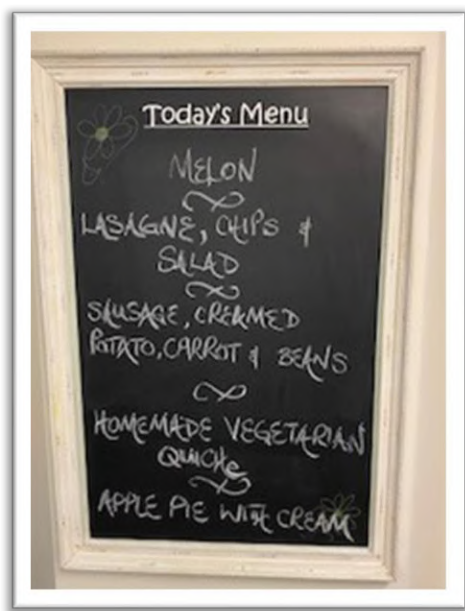 Today's Menu
MELON
LASAGNE, CHIPS &
SALAD
SAUSAGE, CREAMED
POTATO, CARROT & BEANS
HOMEMADE VEGETARIAN
QUICHe
APPLE PIE WITH CREAM